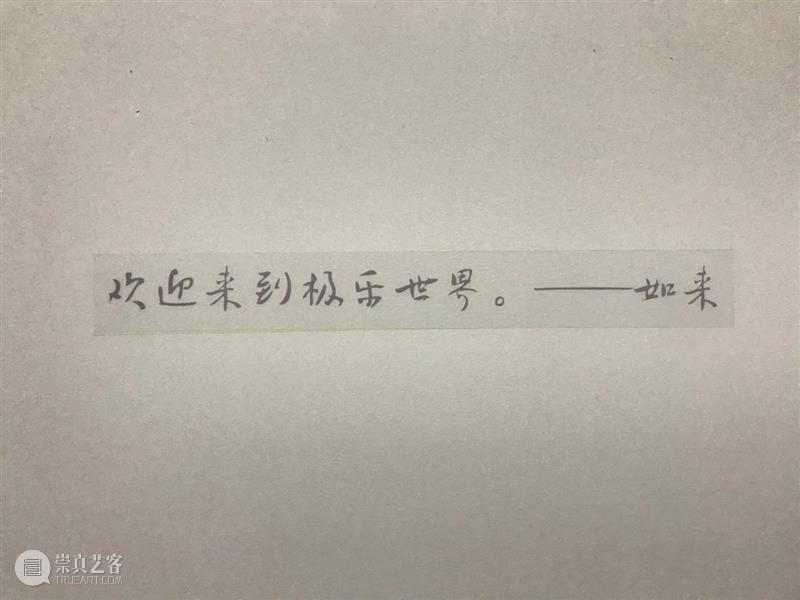 欢迎来到极乐世界。——如来
崇真艺客
TRUEART.COM